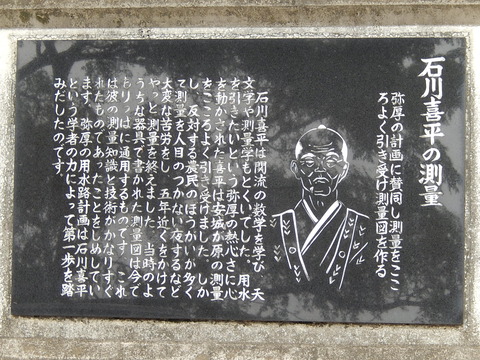 石川喜平の測量
弥厚の計画に賛同し測量をここ
ろよく引き受け測量図を作る
石川喜平は関流の数学を学び、天
文学や測量学もとくいでした。用水
を引きたいという弥厚の熱心さに心
を動かされた喜平は安城が原の測量
をこころよく引き受けました。しか
し、反対する農民のぼうがいが多く
て測量を人目のつかない夜するなど
大変な苦労をし、五年近くをかけて
やっと測量を終えました。当時のよ
うちな器具で書かれた測量図は今で
もりっぱに通用するものです。これ
は彼の測量知識と技術がかなりすぐ
れたものであったことをしめしてい
ます。弥厚の用水路計画は石川喜平
という学者の力によって第一歩を踏
みだしたのです。